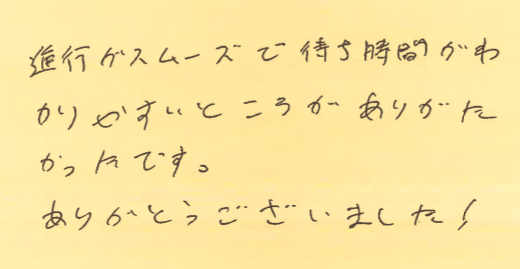 進行がスムーズで待ち時間がわ
かりやすいところがありがた
かったです。
ありがとうございました！